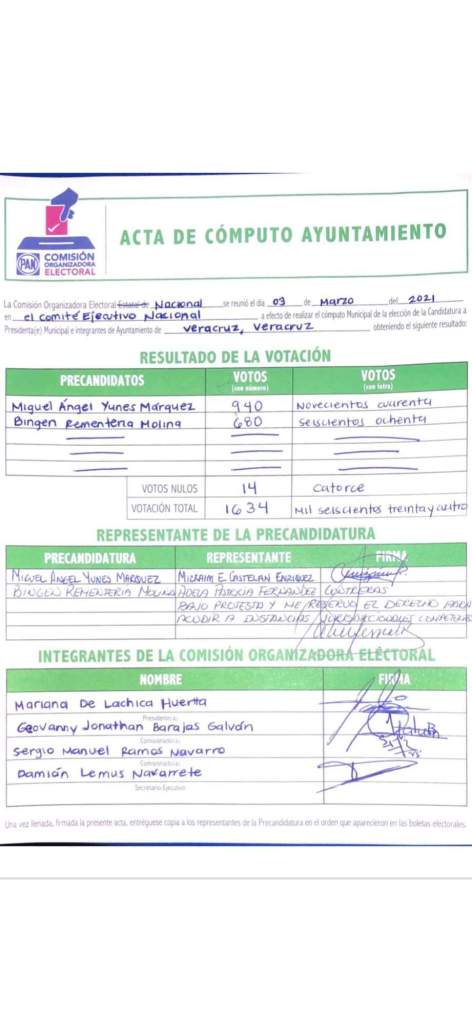 PAN
COMISIÓN
ORGANIZADORA
ELECTORAL
ACTA DE CÓMPUTO AYUNTAMIENTO
La Comisión Organizadora Electoral Estatal de Nacional se reunió el día 03 de Marzo del 2021
en el Comité Ejecutivo Nacional a efecto de realizar el cómputo Municipal de la elección de la Candidatura a
Presidenta(e) Municipal e integrantes de Ayuntamiento de Veracruz, Veracruz obteniendo el siguiente resultado:
RESULTADO DE LA VOTACIÓN
PRECANDIDATOS VOTOS (con número) VOTOS (con letra)
Miguel Ángel Yunes Márquez 940 Novecientos cuarenta
Bingen Rementería Molina 680 Seiscientos ochenta
VOTOS NULOS 14 Catorce
VOTACIÓN TOTAL 1634 Mil seiscientos treinta y cuatro
REPRESENTANTE DE LA PRECANDIDATURA
PRECANDIDATURA REPRESENTANTE FIRMA
MIGUEL ÁNGEL YUNES MÁRQUEZ MICHAIM E. CASTELÁN ENRÍQUEZ
BINGEN REMENTERIA MOLINA ADELA PATRICIA FERNANDEZ CONTRERAS
BAJO PROTESTA Y ME RESERVO EL DERECHO PARA
ACUDIR A INSTANCIAS JURISDICCIONALES
INTEGRANTES DE LA COMISIÓN ORGANIZADORA ELECTORAL
NOMBRE FIRMA
Mariana De Lachica Huerta
Presidente/a
Geovanny Jonathan Barajas Galván
Comisionado/a
Sergio Manuel Ramos Navarro
Comisionado/a
Damián Lemus Navarrete
Secretario Ejecutivo
Una vez llenada, firmada la presente acta, entréguese copia a los representantes de la Precandidatura en el orden que aparecieron en las boletas electorales.